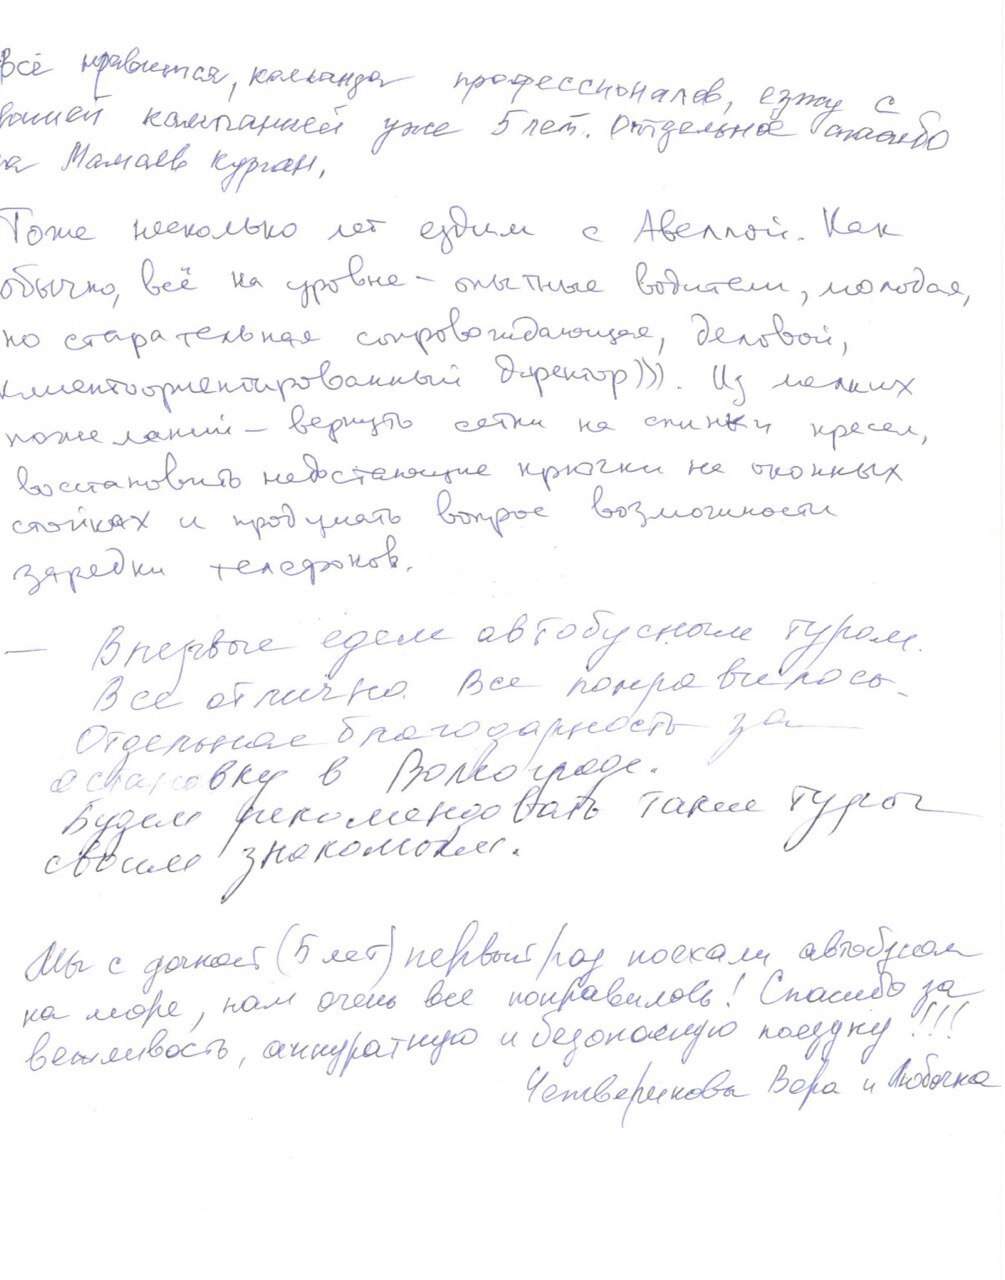 Всё нравится, команда профессионалов, езжу с
вашей компанией уже 5 лет. Отдельное спасибо
за Мамаев курган.
Тоже несколько лет ездим с Авеллой. Как
обычно, всё на уровне – опытные водители, молодая,
но старательная сопровождающая, деловой,
клиентоориентированный директор))). Из мелких
пожеланий – вернуть сетки на спинки кресел,
восстановить недостающие крючки на оконных
стойках и продумать вопрос возможности
зарядки телефонов.
— Впервые едем автобусным туром.
Все отлично. Все понравилось.
Отдельная благодарность за
остановку в Волгограде.
Будем рекомендовать такие туры
своим знакомым.
Мы с дочкой (5 лет) первый раз поехали автобусом
на море, нам очень все понравилось! Спасибо за
вежливость, аккуратную и безопасную поездку!!!
Четвериковы Вера и Любочка